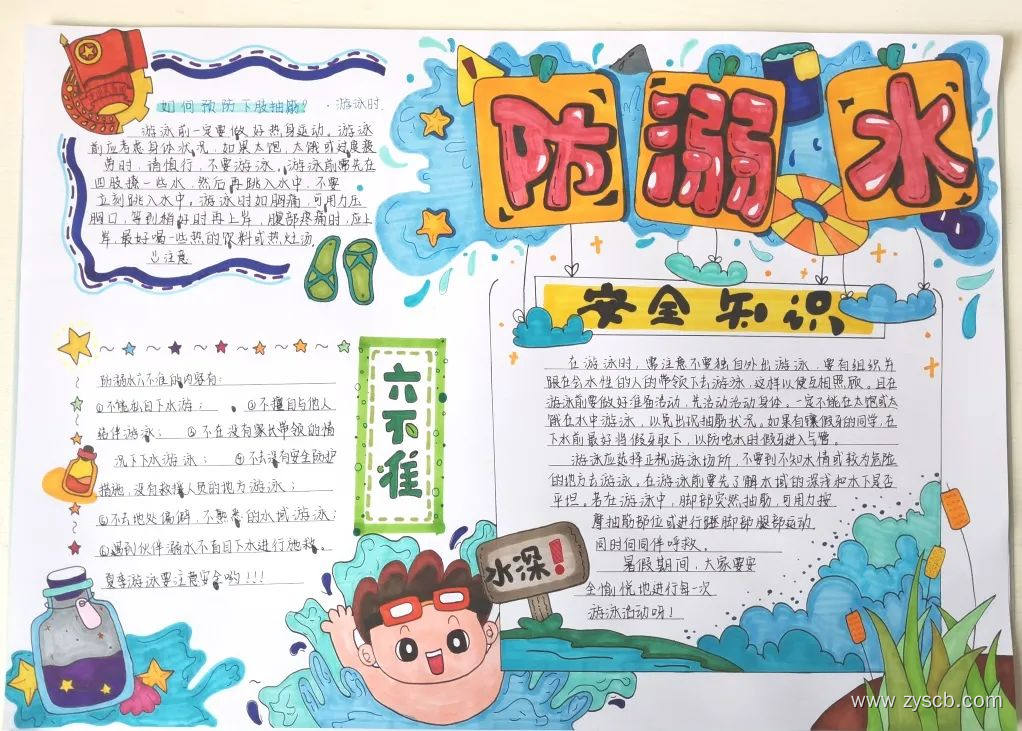 防溺水
如何预防下肢抽筋?
·游泳时
游泳前一定要做好热身运动。游泳
前应考虑身体状况,如果太饱,太饿或过度疲
劳时,请慎行,不要游泳。游泳前需先在
四肢撩一些水,然后再跳入水中,不要
立刻跳入水中。游泳时如胸痛,可用力压
胸口,等到稍好时再上岸,腹部疼痛时,应上
岸,最好喝一些热的饮料或热灶汤
注意
安全知识
在游泳时,需注意不要独自外出游泳,要有组织并
跟在会水性的人的带领下去游泳,这样以便互相照顾。且在
游泳前要做好准备活动,先活动活动身体,一定不能在太饱或太
饿在水中游泳,以免出现抽筋状况。如果有镶假牙的同学,在
下水前最好将假牙取下,以防呛水时假牙进入气管。
游泳应选择正规游泳场所,不要到不知水情或较为危险
的地方去游泳。在游泳前要先了解水域的深浅和水下是否
平坦。若在游泳中,脚部突然抽筋,可用力按
抽筋部位或进行蹬脚部腿部运动,
同时间同伴呼救。
暑假期间,大家要安
全愉悦地进行每一次
游泳活动呀!
六不准
防溺水六不准的内容有:
①不能私自下水游;②不擅自与他人
结伴游泳;③不在没有家长带领的情
况下下水游泳;④不去没有安全防护
措施,没有救援人员的地方游泳;
⑤不去地处偏僻,不熟悉的水域游泳;
⑥遇到伙伴溺水不盲目下水进行施救。
夏季游泳要注意安全哟!!!
水深!
www.zyscb.com